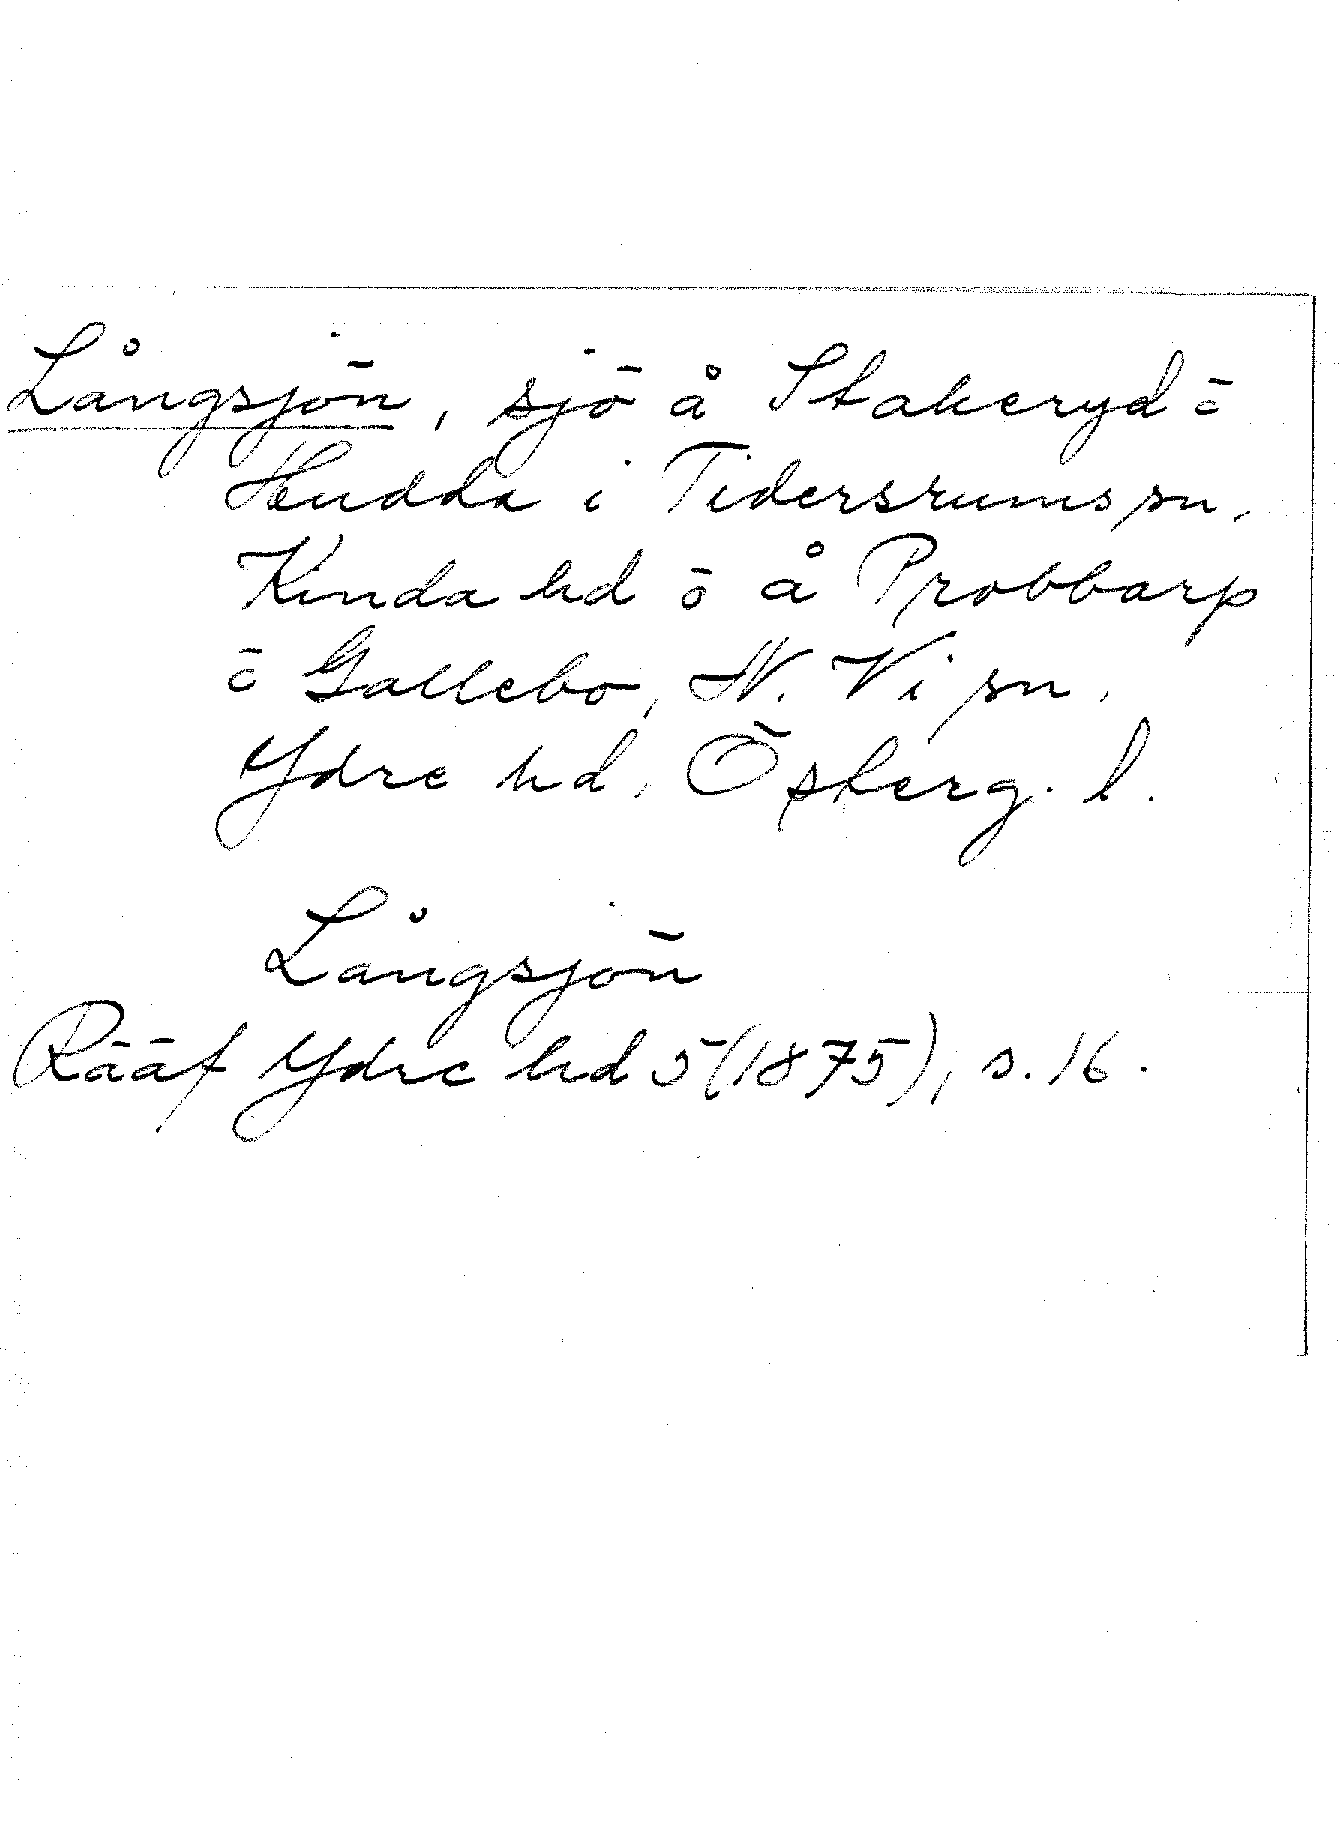 Långsjön, sjö å Stakeryd o
Hudda i Tidersrums sn,
Kinda hd o å Probbarp
o Gallebo, N. Vi sn,
Ydre hd, Österg. l.
Långsjön
Rääf Ydre hd 5 (1875), s. 16.